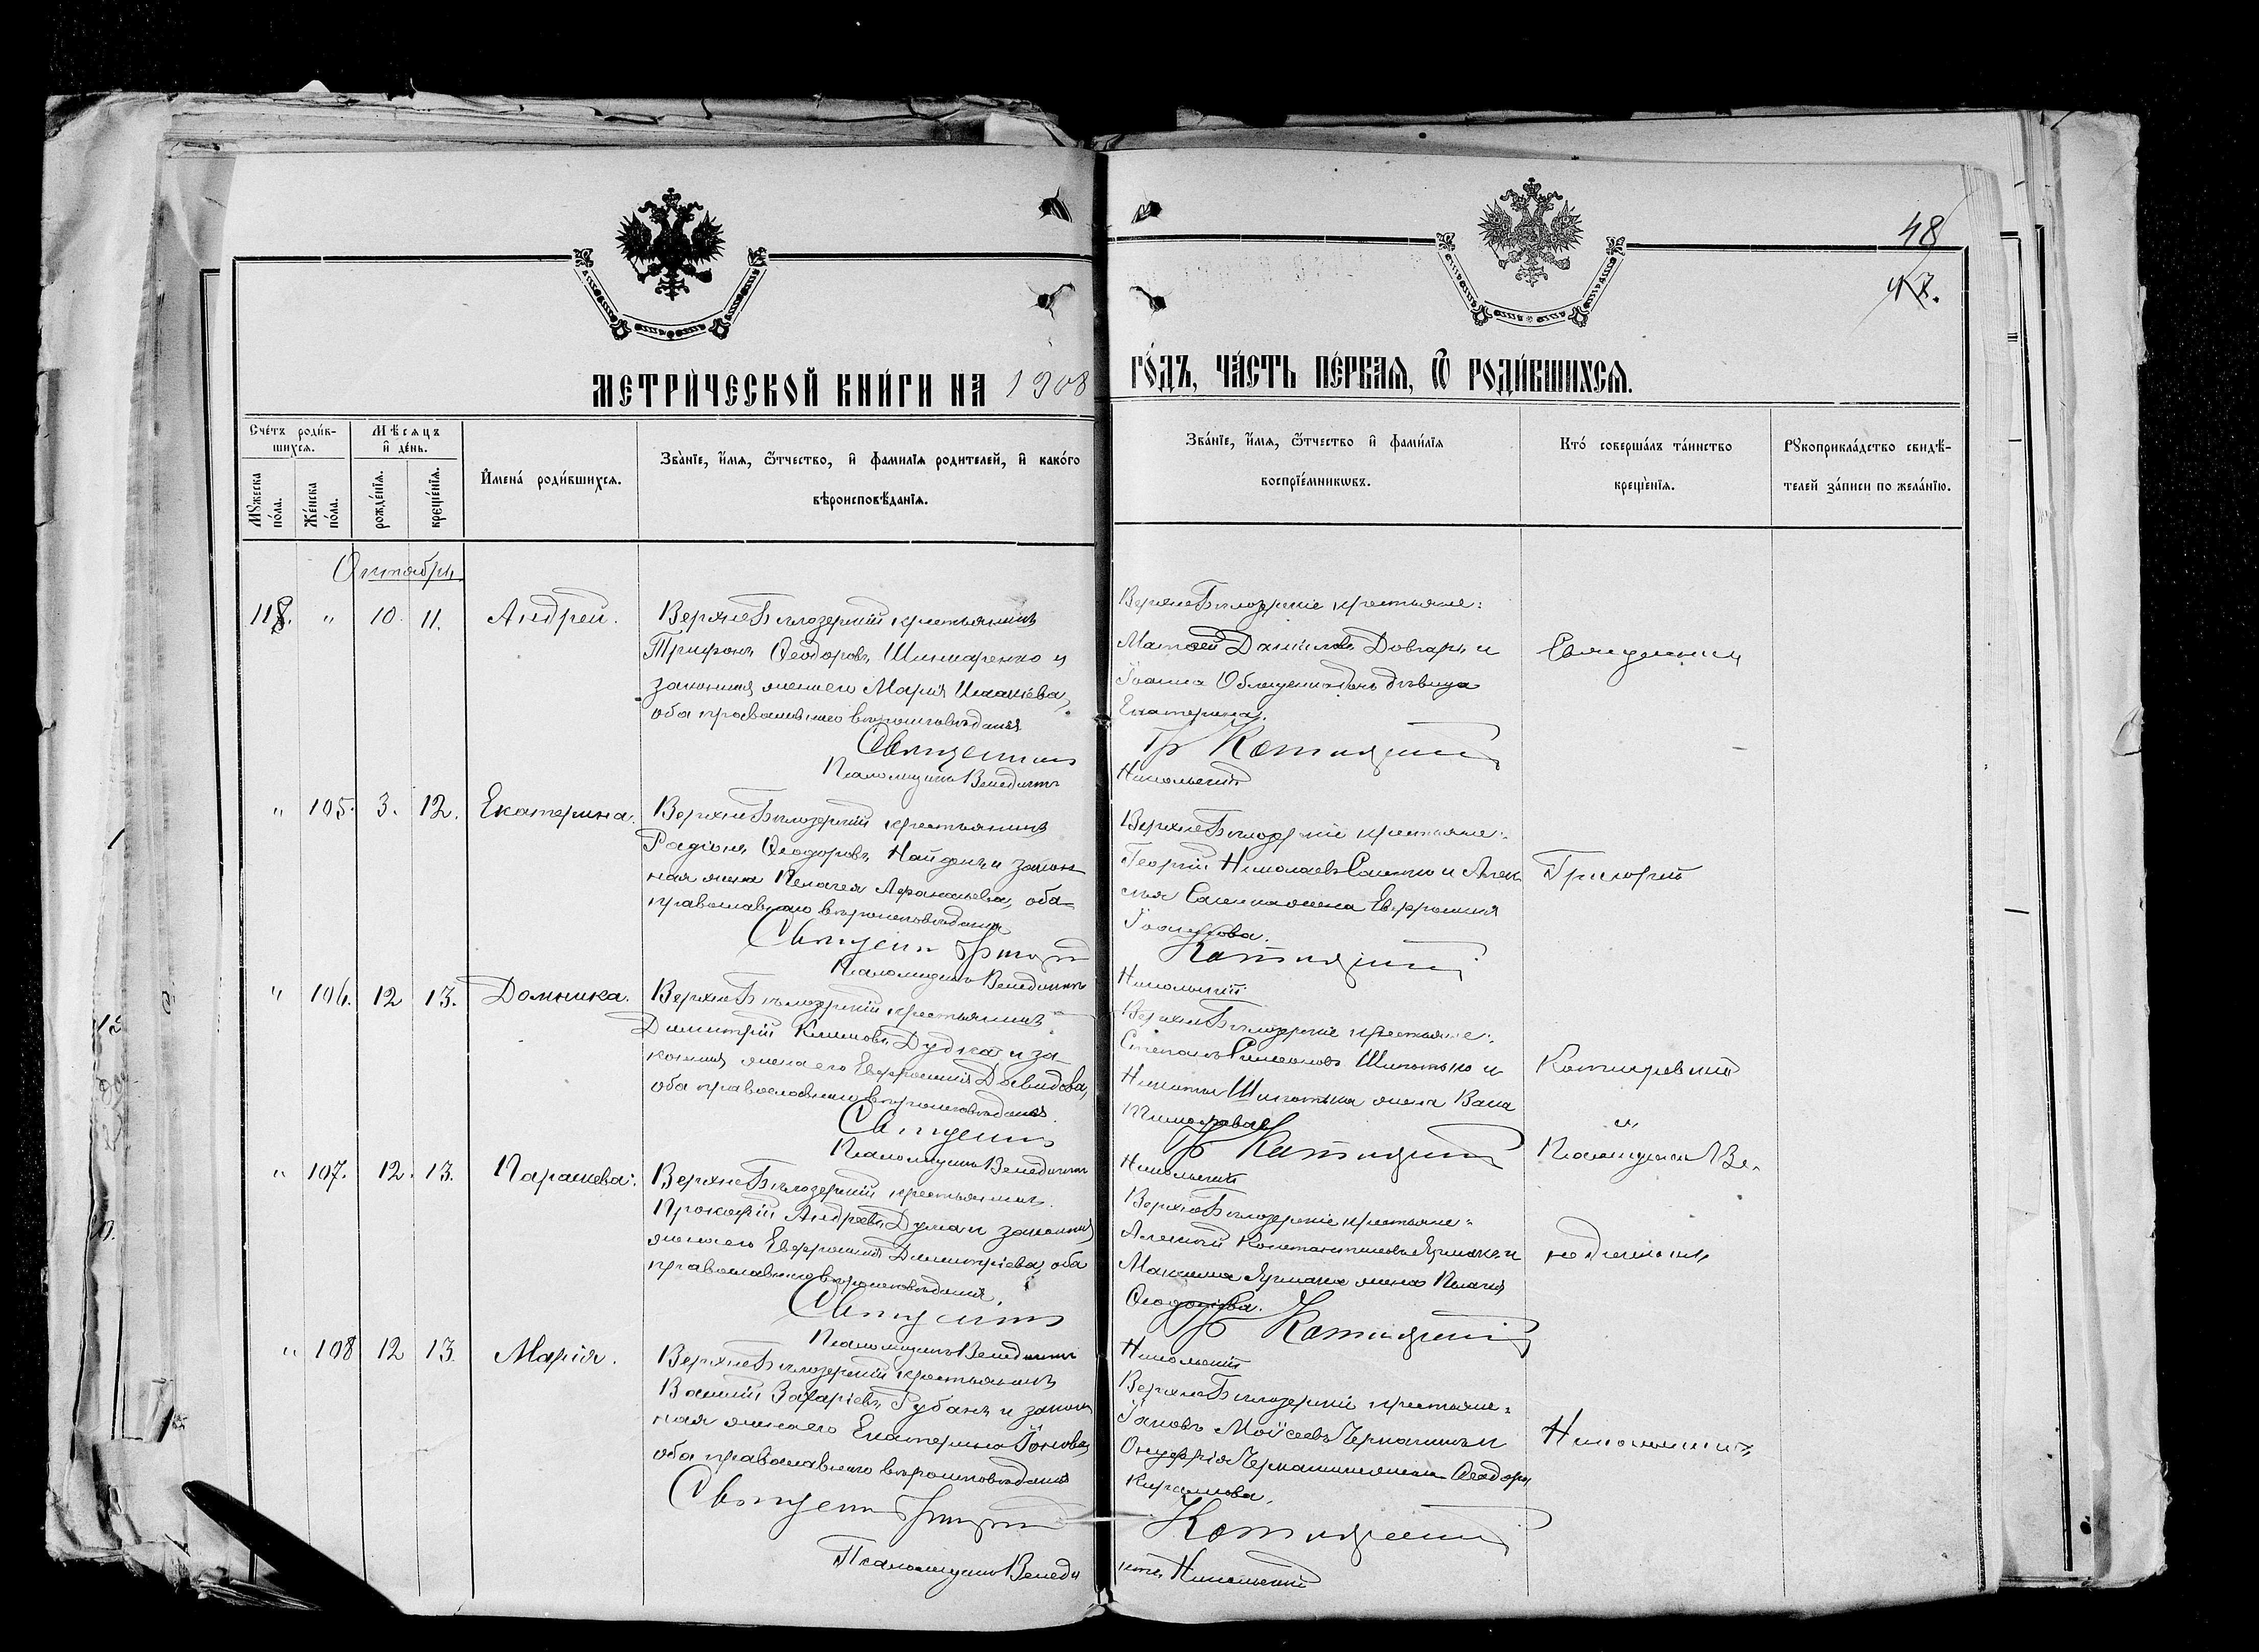 48
47.
МЕТРИ́ЧЕСКОЙ КНИ́ГИ НА 1908
ГО́ДЪ, ЧА́СТЬ ПЕ́РВАЯ, Ѡ РОДИ́ВШИХСЯ.
Счéтъ роди́в-
шихся.
Мꙋ́жеска пóла.
Жéнска пóла.
Мѣ́сяцъ
и дéнь.
рождéнїя.
крещéнїя.
И҆мена́ роди́вшихся.
Зва́нїе, и҆́мя, ѻ҆́тчество, и҆ фами́лїя роди́телей, и҆ како́го
вѣроисповѣ́данїя.
Зва́нїе, и҆́мя, ѻ҆́тчество и҆ фами́лїя
воспрїе́мникѡвъ.
Кто́ соверша́лъ та́инство
креще́нїя.
Рꙋкоприкла́дство свидѣ́-
телей за́писи по жела́нїю.
Октябрь
118. " 10. 11. Андрей.
Верхне Бѣлозерскій крестьянинъ
Трифонъ Ѳеодоровъ Шинкаренко и
законная жена его Марія
оба православнаго вѣроисповѣданія
Священникъ
Псаломщикъ Венедиктъ
Верхне Бѣлозерскіе крестьяне:
Матѳей Даниловъ Довгарь и
Іоанна дѣвица
Екатерина.
Гр Котляревскій
Никольскій
Священникъ
" 105. 3. 12. Екатерина.
Верхне Бѣлозерскій крестьянинъ
Радіонъ Ѳеодоровъ Найденъ и закон-
ная жена Пелагея Афанасьева, оба
православнаго вѣроисповѣданія
Священ Григорій
Псаломщикъ Венедиктъ
Верхне Бѣлозерскіе крестьяне:
Георгій Николаевъ и Алек
жена Евфросинія
Іоаннова.
Котляревскій
Никольскій
Григорій
" 106. 12 13. Домника.
Верхне Бѣлозерскій крестьянинъ
Димитрій Климовъ Дудка и за
конная жена его Евфросинія Давидова,
оба православнаго вѣроисповѣданія.
Священникъ
Псаломщикъ Венедиктъ
Верхне Бѣлозерскіе крестьяне:
Степанъ Симеоновъ и
Никиты жена Васса
Гр Котляревскій
Никольскій
Котляревскій
и
Псаломщикъ Ве-
" 107. 12. 13. Параскева.
Верхне Бѣлозерскій крестьянинъ
Прокофій Андреевъ Дума и законная
жена его Евфросинія Димитріева, оба
православнаго вѣроисповѣданія.
Священникъ
Псаломщикъ Венедиктъ
Верхне Бѣлозерскіе крестьяне:
Алексій Константиновъ Ярмакъ и
Максима Ярмака жена Пелагія
Гр Котляревскій
Никольскій
недиктъ
" 108 12 13. Марія.
Верхне Бѣлозерскій крестьянинъ
Василій Захаріевъ Рубанъ и закон
ная жена его Екатерина Іонова,
оба православнаго вѣроисповѣданія
Священ Григорій
Псаломщикъ Венеди
Верхне Бѣлозерскіе крестьяне:
Іаковъ Моѵсеевъ и
Онуфрія жена Ѳеодора
Котляревскій
ктъ Никольскій
Никольскій